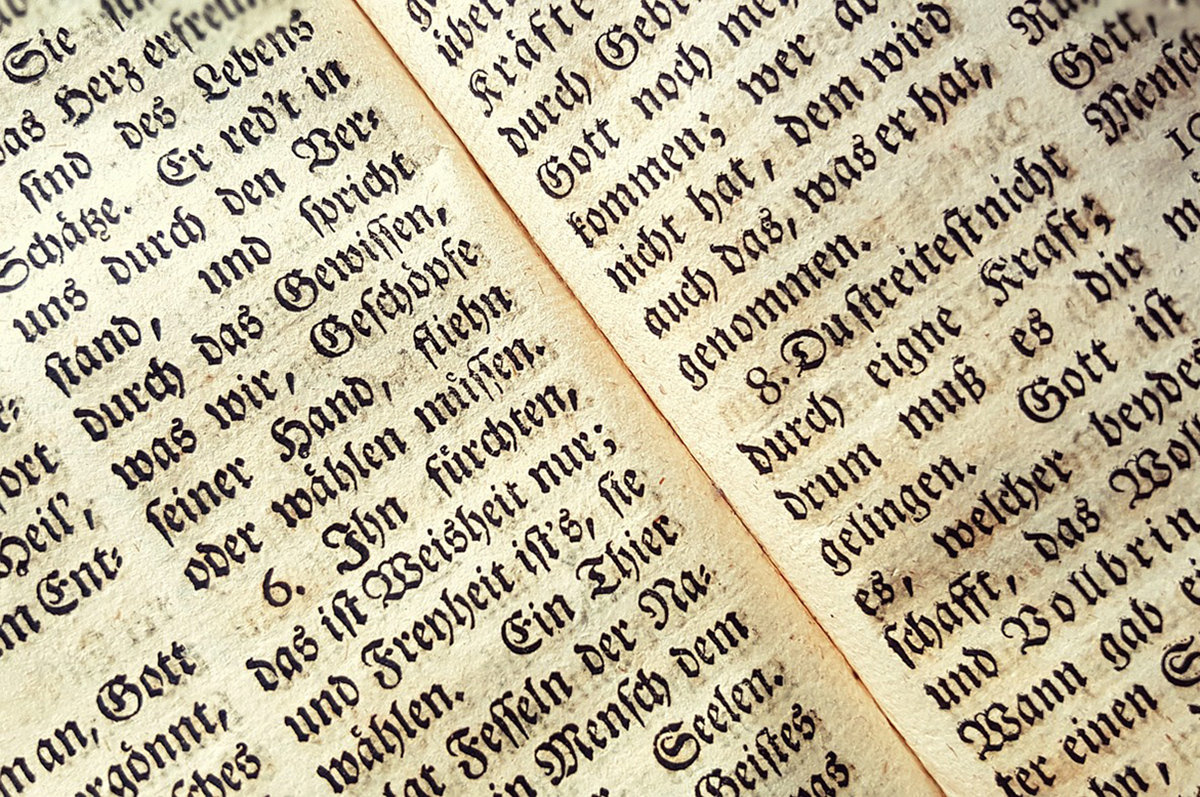 Sie
das Herz erfreun
sind des Lebens
Schätze. Er red't in
uns durch den Ver-
stand, und spricht
durch das Gewissen,
was wir, Geschöpfe
seiner Hand, fliehn
oder wählen müssen.
6. Ihn fürchten,
das ist Weisheit nur;
und Freyheit ist's, sie
wählen. Ein Thier
hat Fesseln der Na-
ein Mensch dem
Seelen.
Geistes
Heil',
m Ent-
m an, Gott
Kräfte
durch
Gott noch
kommen; wer
nicht hat, dem wird
auch das, was er hat,
genommen.
8. Du streitest nicht
durch eigne Kraft;
drum muß es dir
gelingen. Gott ist
es, welcher beyde
schafft, das
und Vollbrin
Wann gab
ter einen
Gott,